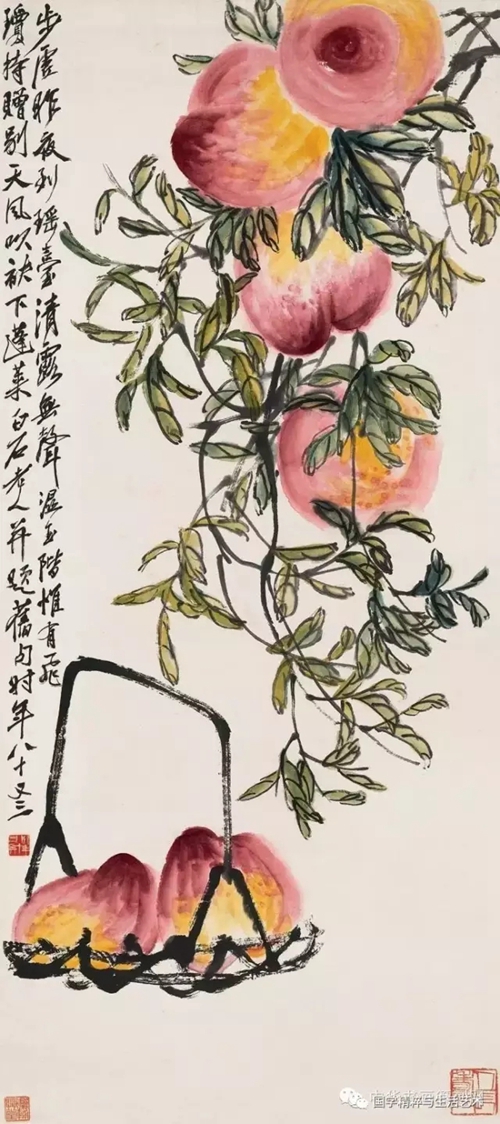 步虛昨夜到瑤臺清露無聲濕玉階惟有飛
瓊持贈別天風吹袂下蓬萊白石老人并題舊句時年八十又三
国学精粹与生活艺术